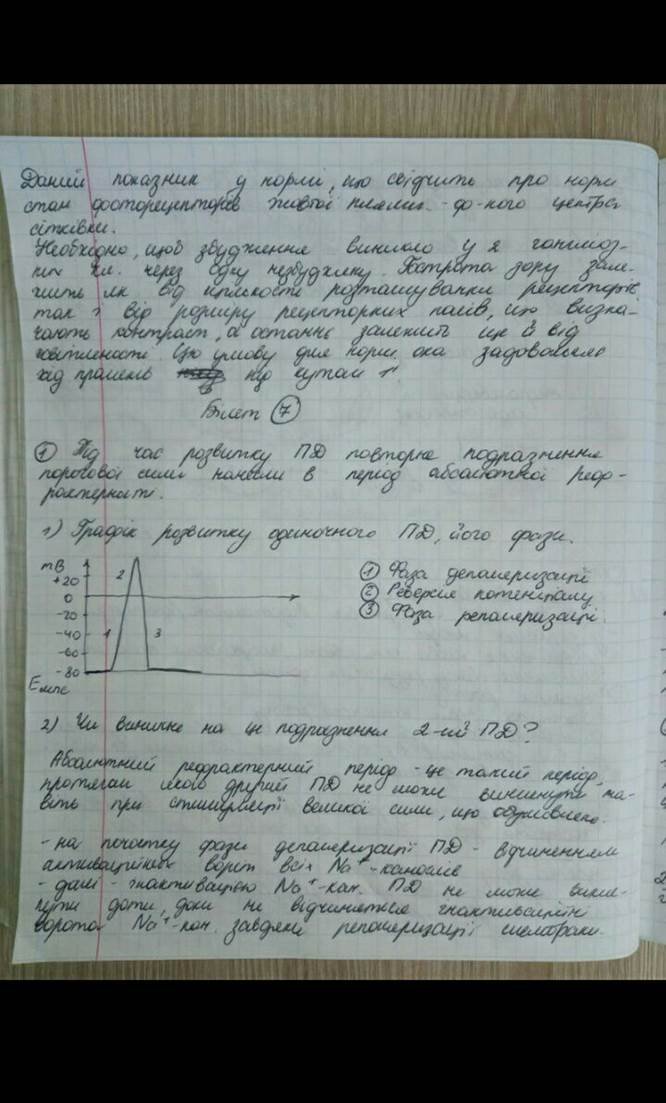 Даний показник у нормі, що свідчить про норм
стан фоторецепторів жовтої плями - ф-ного центра
сітківки.
Необхідно, щоб збудження виникло у 2 гангліоз-
них кл. через одну незбуджену. Гострота зору зале-
жить як від щільності розташування рецепторів
так і від розміру рецепторних полів, що визна-
чають контраст, а останнє залежить ще й від
освітленості. Цю умову для норм. ока задовольняє
хід променів під кутом 1'
Білет 7
1 Під час розвитку ПД повторне подразнення
порогової сили нанесли в період абсолютної реф-
рактерності.
1) Графік розвитку одиночного ПД, його фази.
mB
+20
0
-20
-40
-60
-80
Емпс
1 2 3
1 Фаза деполяризації
2 Реверсія потенціалу
3 Фаза реполяризації
2) Чи виникне на це подразнення 2-ий ПД?
Абсолютний рефрактерний період - це такий період,
протягом якого другий ПД не може виникнути на-
віть при стимуляції великої сили, що обумовлено:
- на початку фази деполяризації ПД - відчиненням
активаційних воріт всіх Na+-каналів
- далі - інактивацією Na+-кан. ПД не може виник-
нути доти, доки не відчиняться інактиваційні
ворота Na+-кан. завдяки реполяризації мембрани.